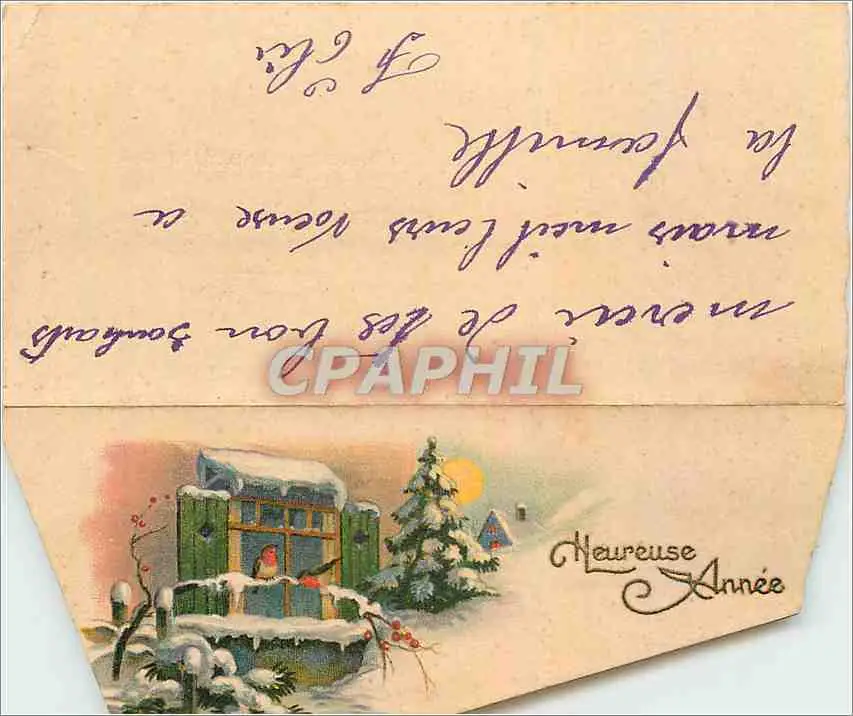 merci de tes bon souhaits
mais meilleurs Voeuse a
la famille
CPAPHIL
Heureuse
Année